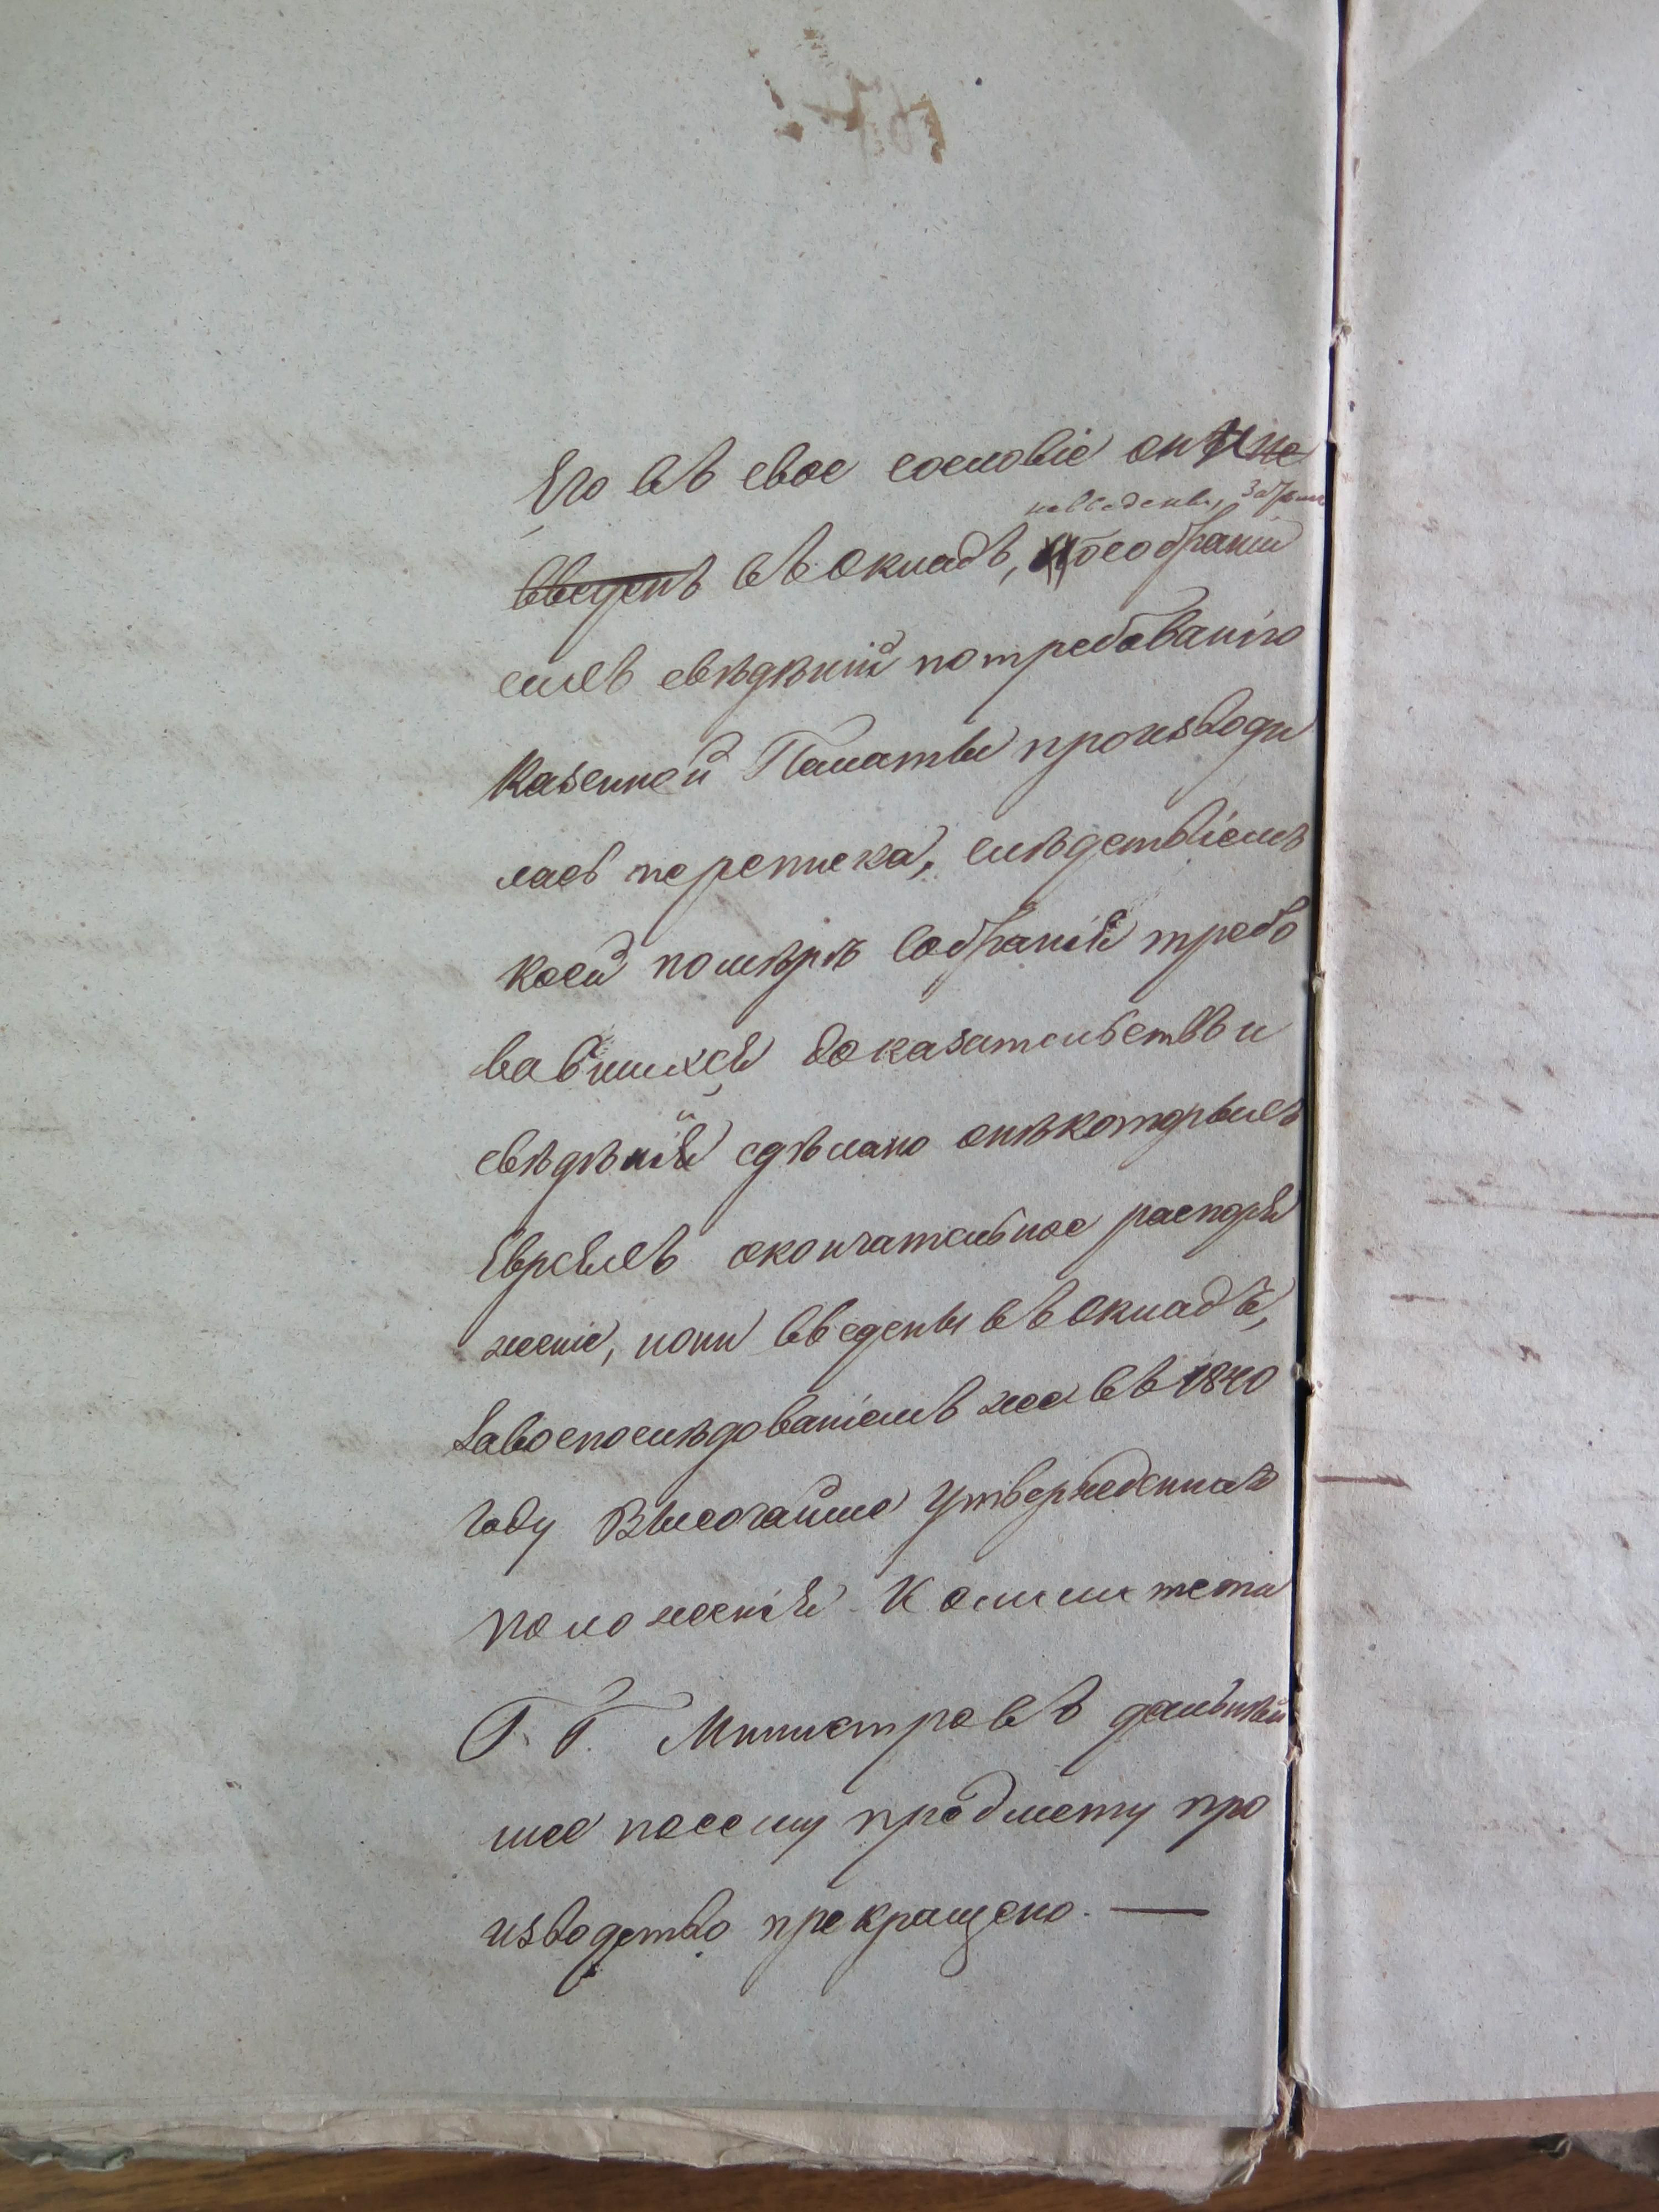 его въ свое сословіе онъ не
не введенъ,
введенъ въ окладъ, о собраніи
сихъ свѣдѣній по требованію
Казенной Палаты производи
лась переписка, слѣдствіемъ
коей по мѣрѣ собранія требо
вавшихся доказательствъ и
свѣдѣній сдѣлано о нѣкоторыхъ
Евреяхъ окончательное распоря
женіе, и они введены въ окладъ,
За воспослѣдованіемъ же въ 1840
году Высочайше утвержденнаго
положенія Комитета
Г. Г. Министровъ дальнѣй
шее по сему предмету про
изводство прекращено. —